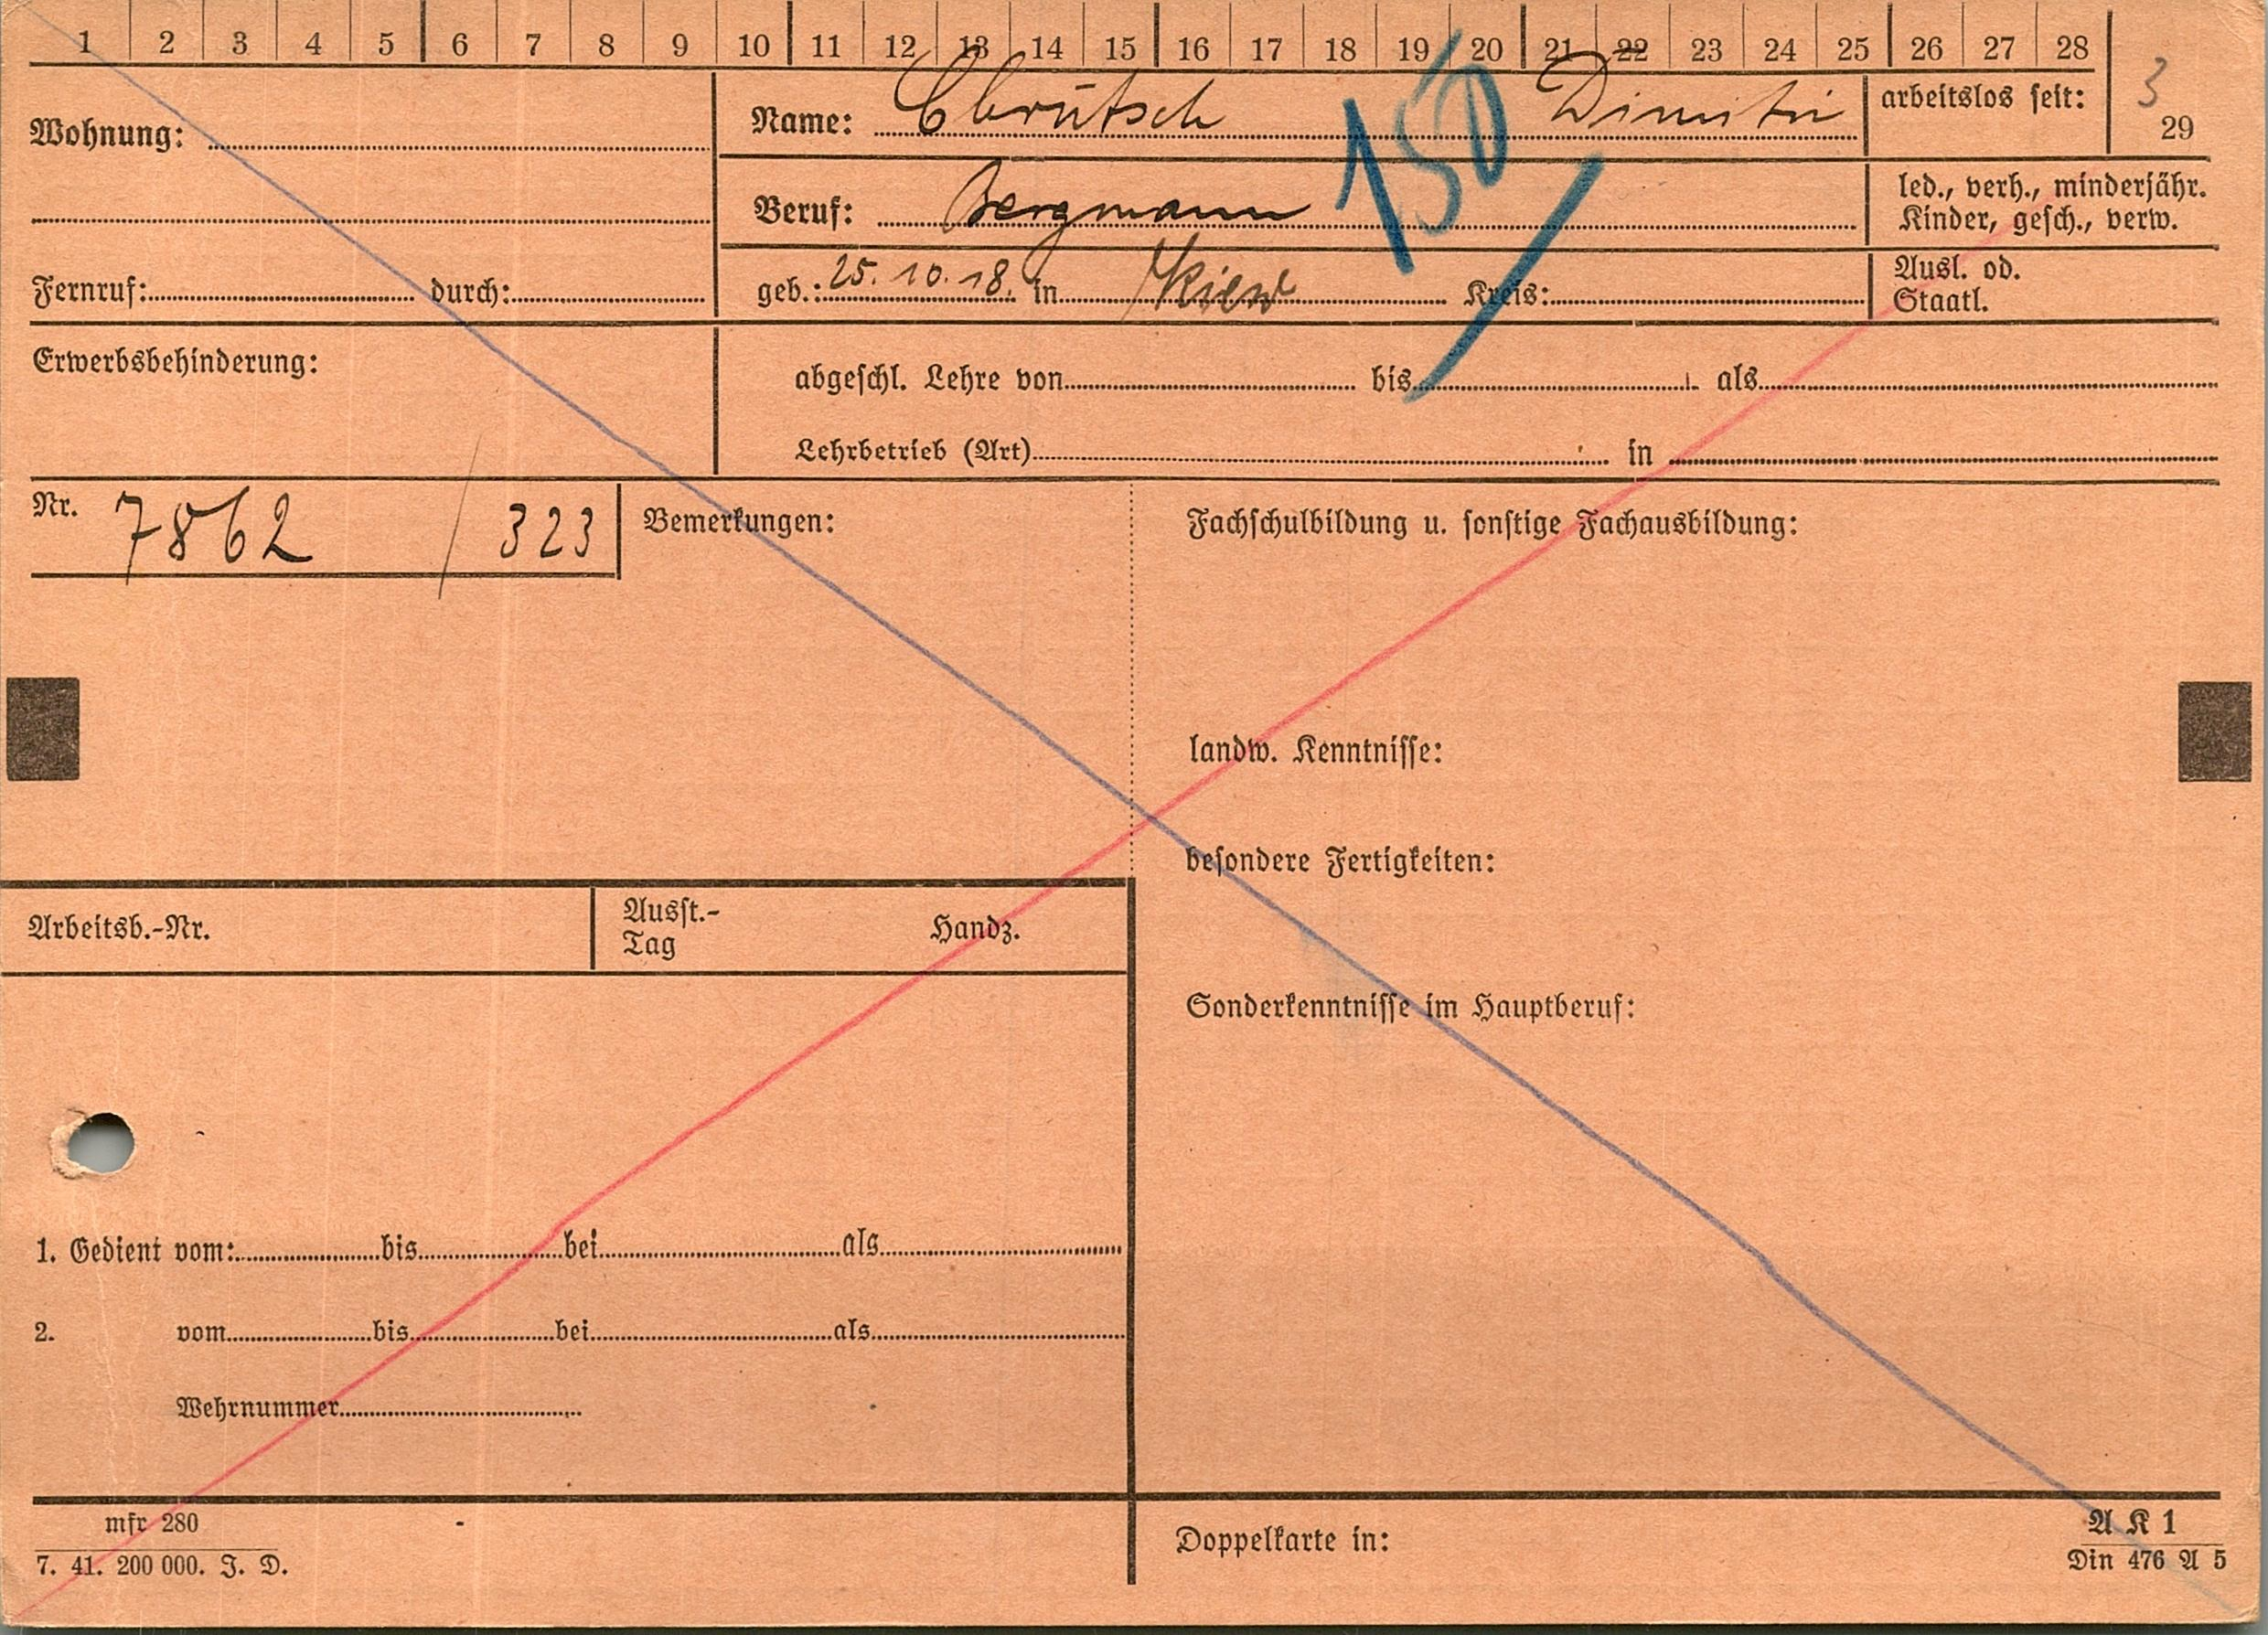 1 2 3 4 5 6 7 8 9 10 11 12 13 14 15 16 17 18 19 20 21 22 23 24 25 26 27 28
3
29
Wohnung:
Name: Chrutsch Dimitri
arbeitslos seit:
150
Beruf: Bergmann
led., verh., minderjähr.
Kinder, gesch., verw.
Fernruf: durch:
geb.: 25.10.18. in Kiew Kreis:
Ausl. od.
Staatl.
Erwerbsbehinderung:
abgeschl. Lehre von bis als
Lehrbetrieb (Art) in
Nr. 7862 / 323
Bemerkungen:
Fachschulbildung u. sonstige Fachausbildung:
landw. Kenntnisse:
besondere Fertigkeiten:
Arbeitsb.-Nr.
Ausst.-
Tag
Handz.
Sonderkenntnisse im Hauptberuf:
1. Gedient vom: bis bei als
2. vom bis bei als
Wehrnummer
mfr 280
7. 41. 200 000. J. D.
Doppelkarte in:
A K 1
Din 476 A 5